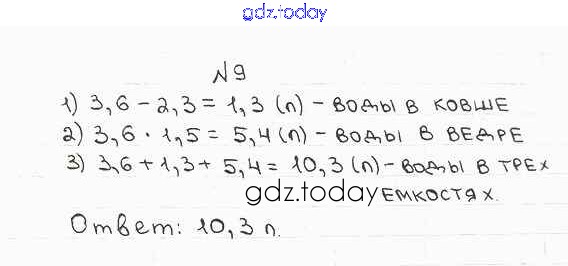 gdz.today
№9
1) 3,6 - 2,3 = 1,3 (л) - воды в ковше
2) 3,6 · 1,5 = 5,4 (л) - воды в ведре
3) 3,6 + 1,3 + 5,4 = 10,3 (л) - воды в трех
gdz.today емкостях.
Ответ: 10,3 л.